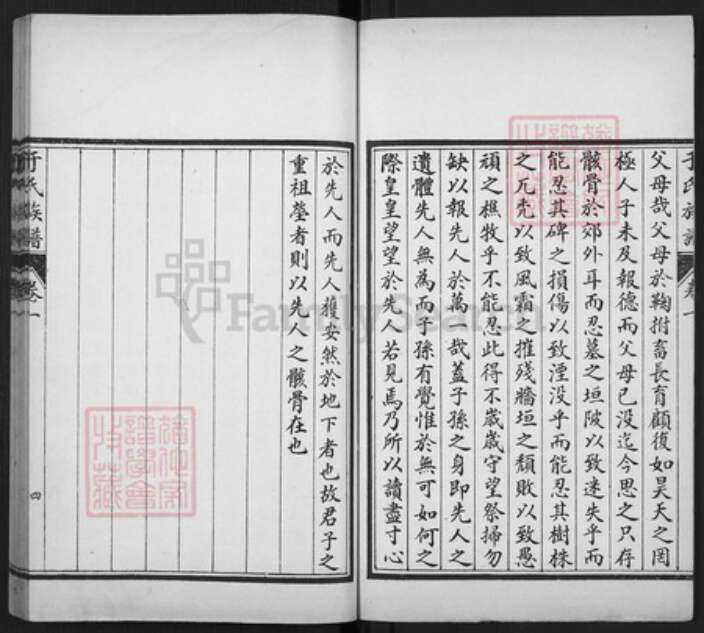 于氏族譜 卷一
父母哉父母於鞠拊畜長育顧復如昊天之罔
極人子未及報德而父母已没迄今思之只存
骸骨於郊外耳而忍墓之垣陂以致迷失乎而
能忍其碑之損傷以致湮没乎而能忍其樹株
之兀秃以致風霜之摧殘牆垣之頹敗以致愚
頑之樵牧乎不能忍此得不歲歲守望祭掃勿
缺以報先人於萬一哉蓋子孫之身即先人之
遺體先人無為而子孫有覺惟於無可如何之
際皇皇望望於先人若見焉乃所以讀盡寸心
於先人而先人獲安然於地下者也故君子之
重祖塋者則以先人之骸骨在也
于氏族譜 卷一 四
FamilySearch